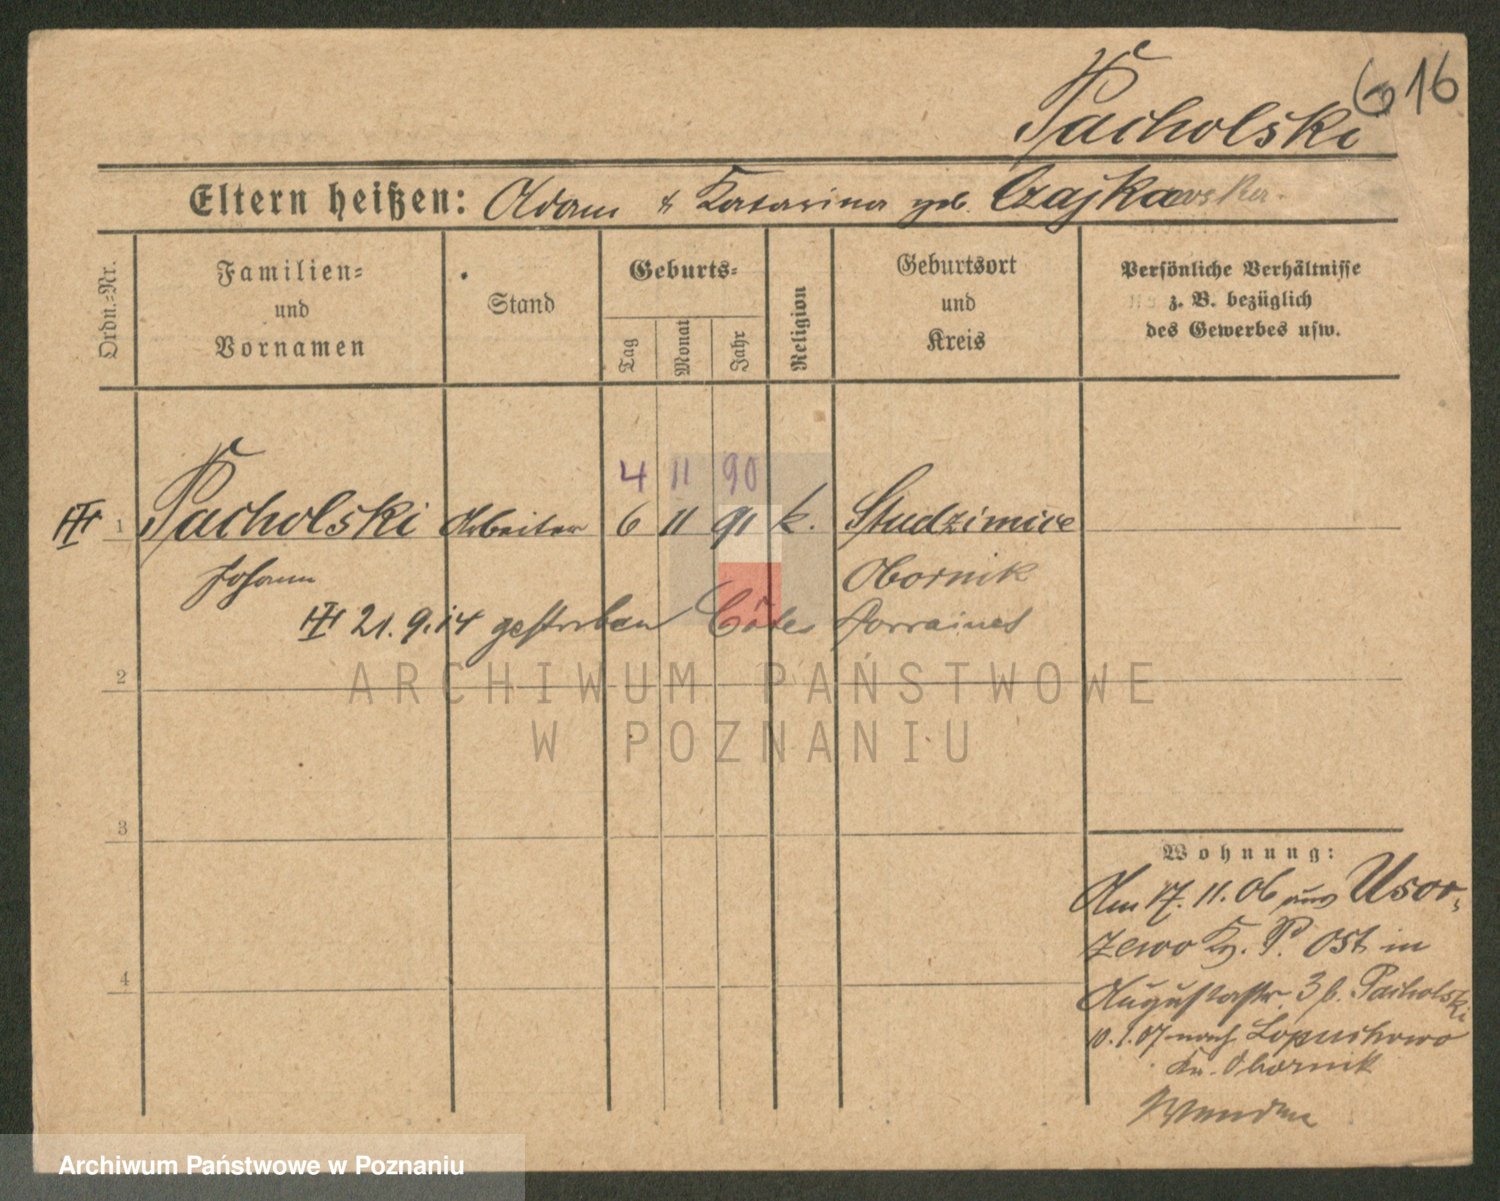 Pacholski
616
Eltern heißen: Adam & Katarina geb. Czajkowska
Ordn.-Nr.
Familien-
und
Vornamen
Stand
Geburts-
Tag
Monat
Jahr
Religion
Geburtsort
und
Kreis
Persönliche Verhältnisse
z. B. bezüglich
des Gewerbes usw.
4 11 90
1 Pacholski Arbeiter 6 11 91 k. Studzimice
Johann Obornik
21.9.14 gestorben Côtes Lorraines
2
ARCHIWUM PAŃSTWOWE
W POZNANIU
3
Wohnung:
Am 17.11.06 aus Usor-
zewo Kr. P. Ost in
Augustastr. 3 b. Pacholski
10.1.07 nach Lopuchowo
Kr. Obornik
4
Wenden
Archiwum Państwowe w Poznaniu